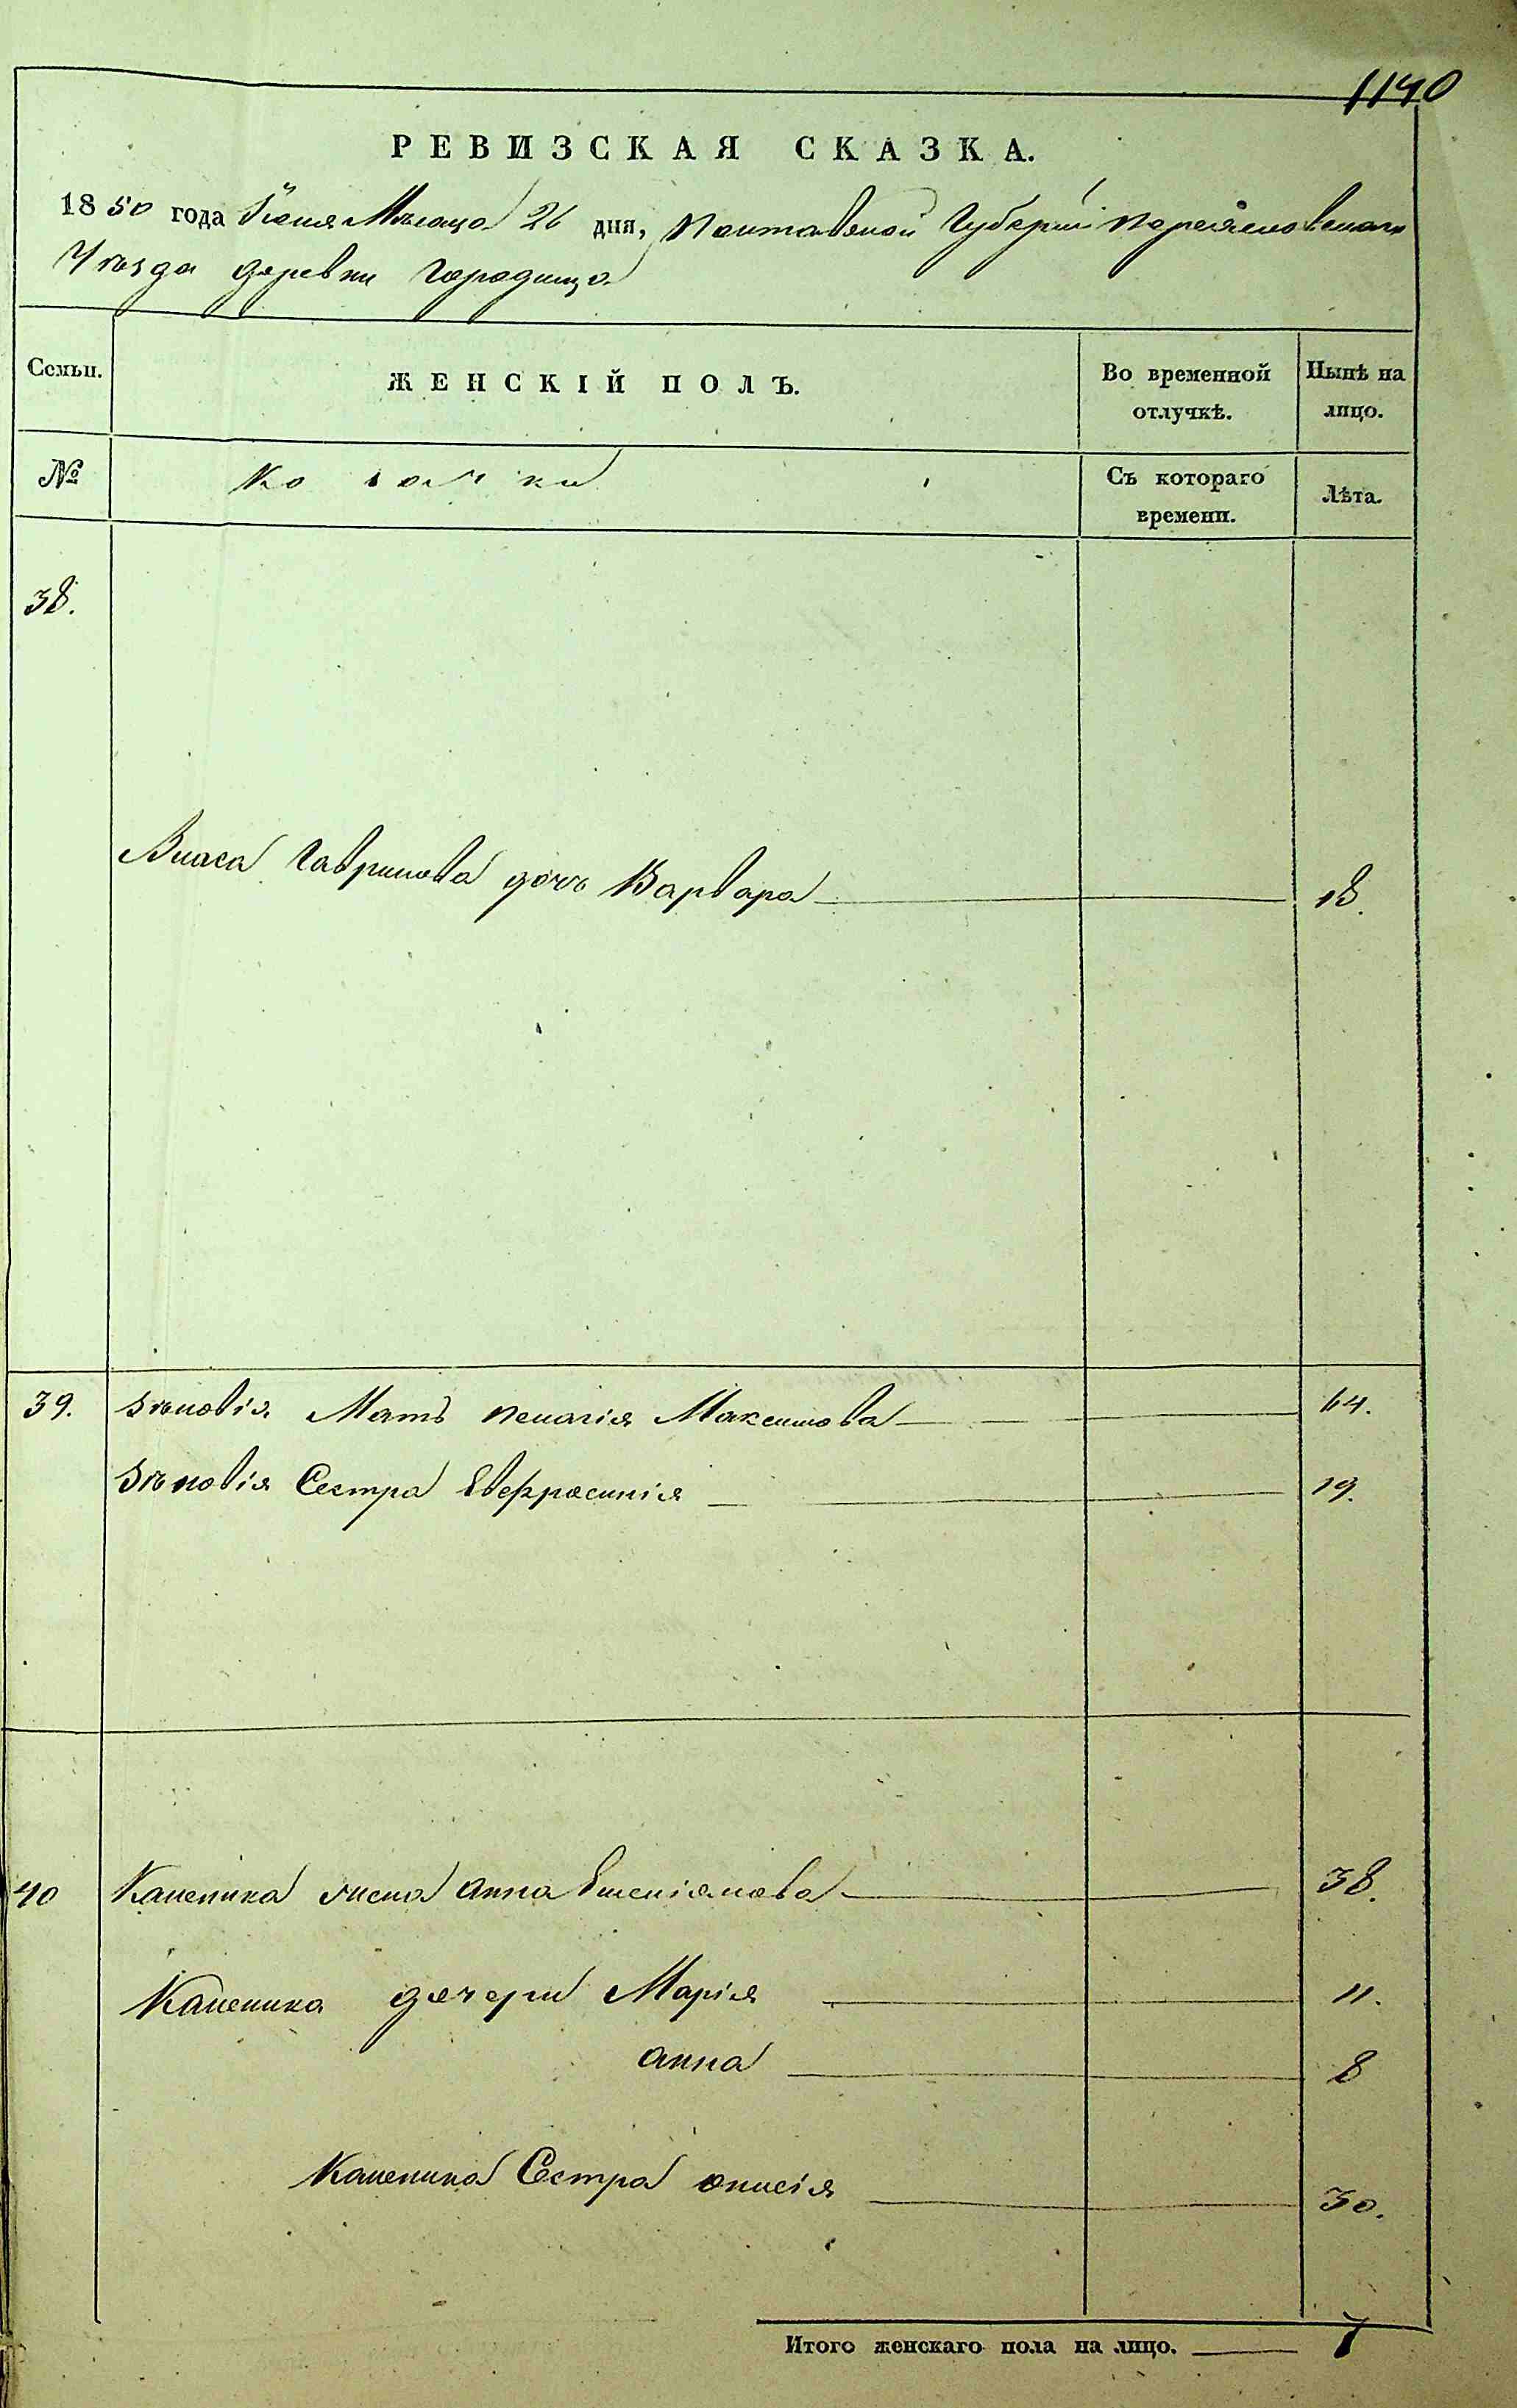 1140
РЕВИЗСКАЯ СКАЗКА.
1850 года Іюня Мѣсяца 26 дня, Полтавской Губерніи Переяславскаго
Уѣзда деревни Городища
Семьи.
ЖЕНСКІЙ ПОЛЪ.
Во временной отлучкѣ.
Нынѣ на лицо.
№
Съ котораго времени.
Лѣта.
38.
Власа Гаврилова дочь Варвара 18.
39. Зѣновія Мать Пелагія Максимова 64.
Зѣновія Сестра Евфросинія 19.
40 Каленика жена Анна Емеліянова 38.
Каленика дочери Марія 11.
Анна 8
Каленика Сестра 30.
Итого женскаго пола на лицо. 7